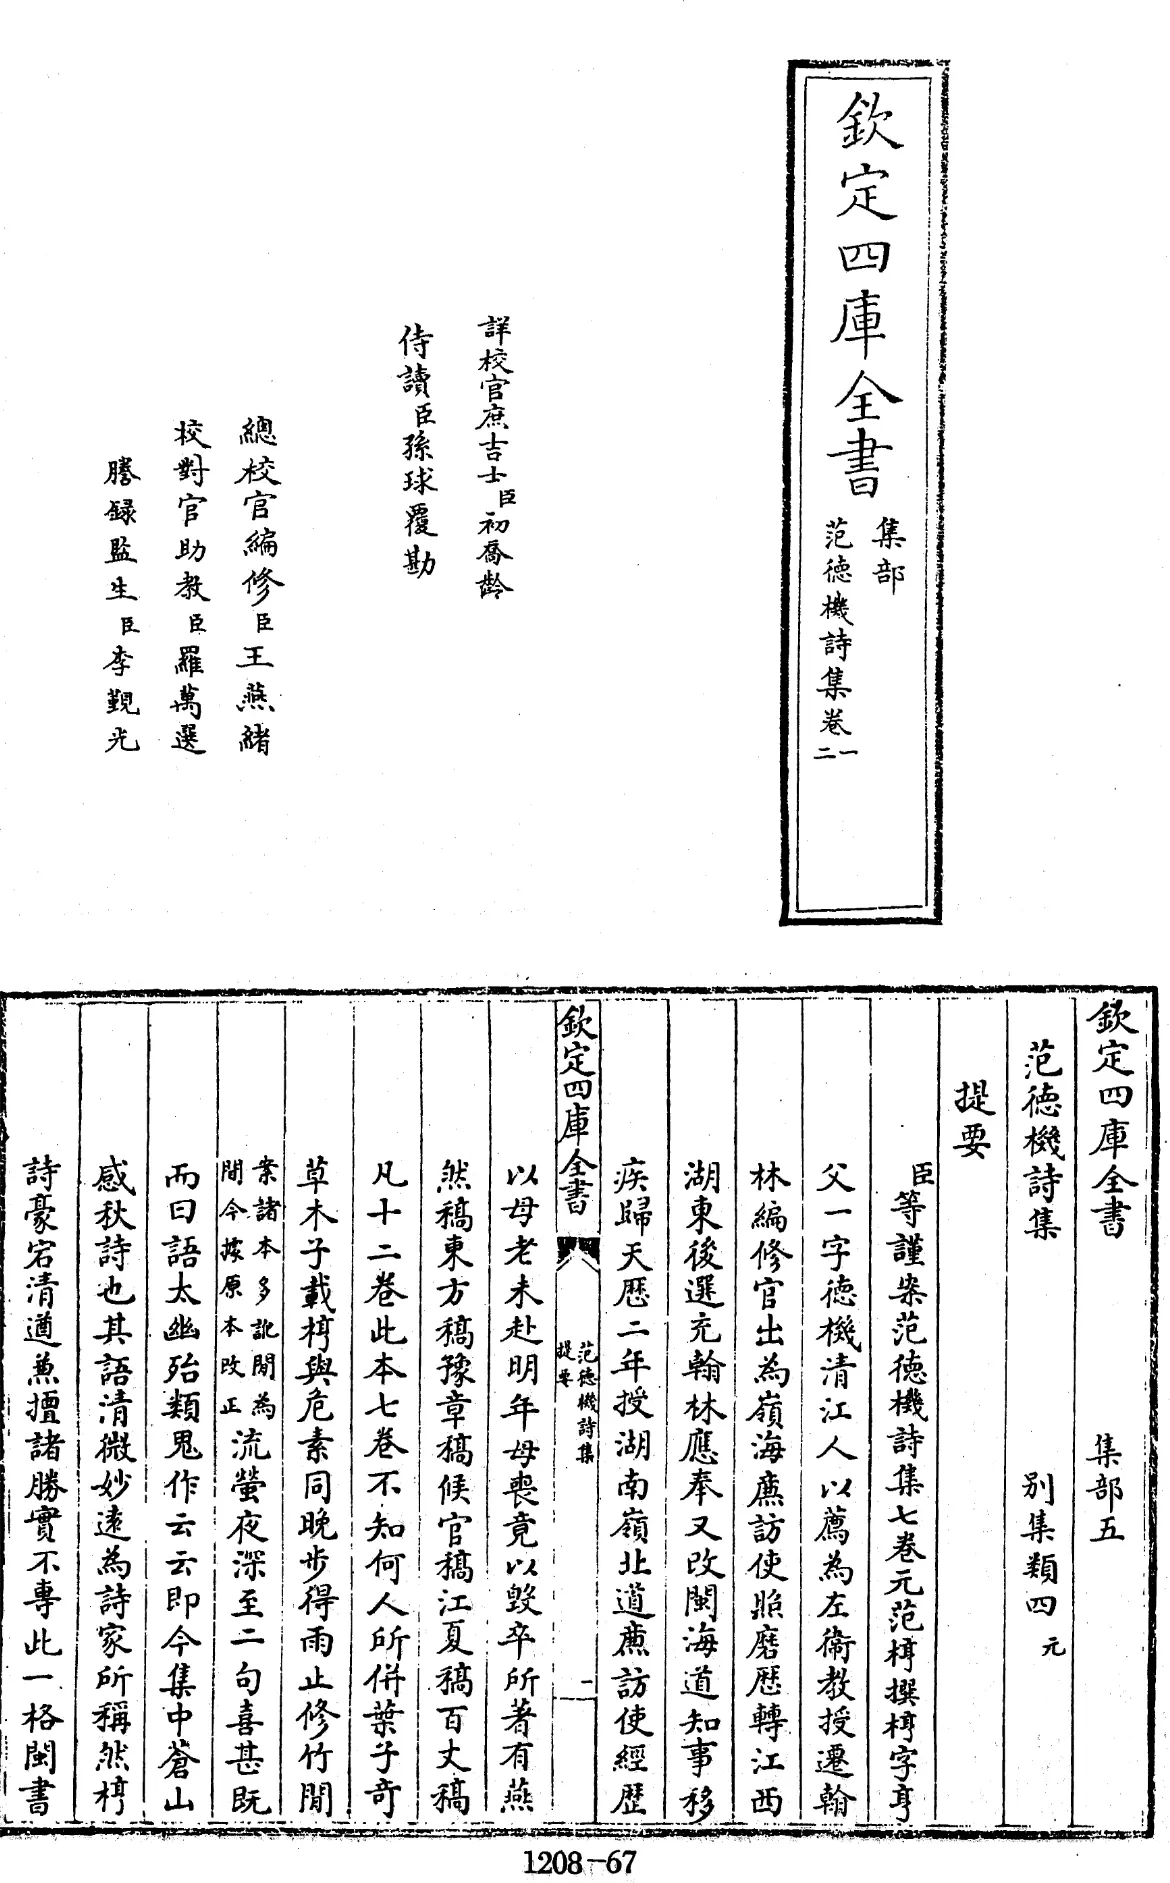 欽定四庫全書
集部
范德機詩集卷一
二
詳校官庶吉士臣初喬齡
侍讀臣孫球覆勘
總校官編修臣王燕緒
校對官助教臣羅萬選
謄録監生臣李覲光
欽定四庫全書 集部五
范德機詩集 别集類四元
提要
臣等謹案范德機詩集七卷元范梈撰梈字亨
父一字德機清江人以薦為左衞教授遷翰
林編修官出為嶺海亷訪使照磨歴轉江西
湖東後選充翰林應奉又改閩海道知事移
疾歸天歴二年授湖南嶺北道亷訪使經歴
欽定四庫全書
范德機詩集
提要
一
以母老未赴明年母喪竟以毀卒所著有燕
然稿東方稿豫章稿候官稿江夏稿百丈稿
凡十二卷此本七卷不知何人所併葉子竒
草木子載梈與危素同晚步得雨止修竹間
案諸本多訛間為
閒今據原本改正流螢夜深至二句喜甚既
而曰語太幽殆類鬼作云云即今集中蒼山
感秋詩也其語清微妙逺為詩家所稱然梈
詩豪宕清遒兼擅諸勝實不專此一格閩書
1208-67